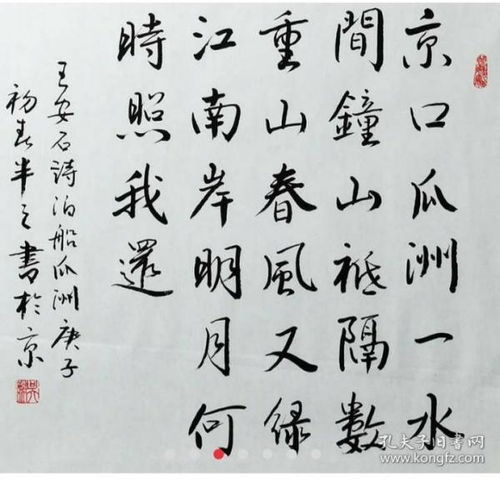 京口瓜洲一水
間鐘山祗隔數
重山春風又绿
江南岸明月何
時照我還
王安石詩泊船瓜洲庚子
初春半之書於京
孔夫子旧书网
www.kongfz.com